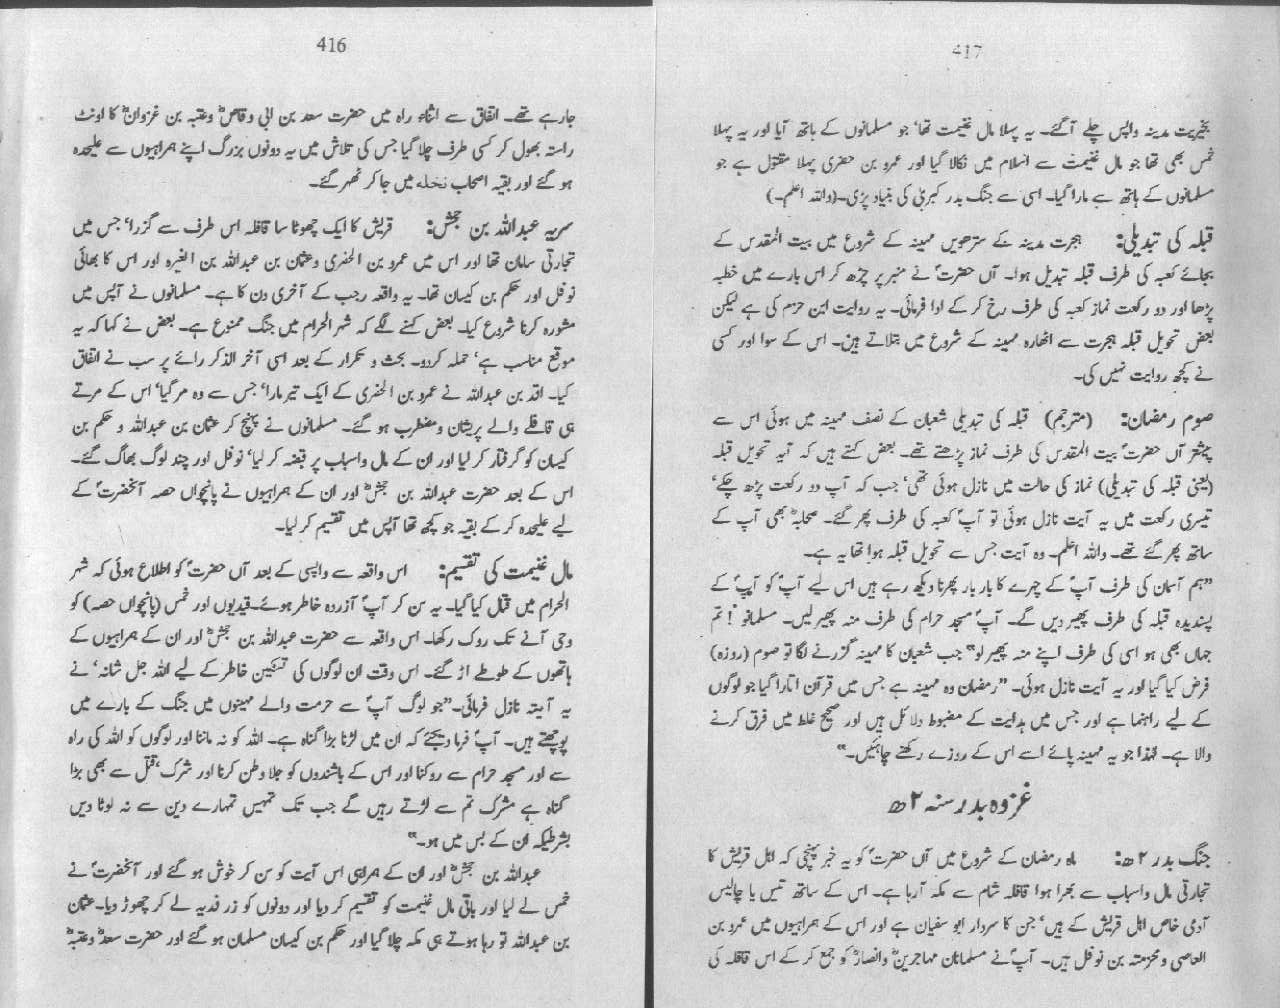 416
جارہے تھے۔ اتفاق سے اثناء راہ میں حضرت سعد بن ابی وقاصؓ وعتبہ بن غزوانؓ کا اونٹ
راستہ بھول کر کسی طرف چلا گیا جس کی تلاش میں یہ دونوں بزرگ اپنے ہمراہیوں سے علیحدہ
ہو گئے اور بقیہ اصحاب نخلہ میں جا کر ٹھہر گئے۔
سریہ عبداللہ بن جحش: قریش کا ایک چھوٹا سا قافلہ اس طرف سے گزرا‘ جس میں
تجارتی سامان تھا اور اس میں عمرو بن الحضری وعثمان بن عبداللہ بن المغیرہ اور اس کا بھائی
نوفل اور حکم بن کیسان تھا۔ یہ واقعہ رجب کے آخری دن کا ہے۔ مسلمانوں نے آپس میں
مشورہ کرنا شروع کیا۔ بعض کہنے لگے کہ شہر الحرام میں جنگ ممنوع ہے۔ بعض نے کہا کہ یہ
موقع مناسب ہے‘ حملہ کردو۔ بحث و تکرار کے بعد اسی آخر الذکر رائے پر سب نے اتفاق
کیا۔ اقد بن عبداللہ نے عمرو بن الحضری کے ایک تیر مارا‘ جس سے وہ مر گیا‘ اس کے مرتے
ہی قافلے والے پریشان ومضطرب ہو گئے۔ مسلمانوں نے پہنچ کر عثمان بن عبداللہ و حکم بن
کیسان کو گرفتار کر لیا اور ان کے مال واسباب پر قبضہ کر لیا‘ نوفل اور چند لوگ بھاگ گئے۔
اس کے بعد حضرت عبداللہ بن جحشؓ اور ان کے ہمراہیوں نے پانچواں حصہ آنحضرتؐ کے
لیے علیحدہ کر کے بقیہ جو کچھ تھا آپس میں تقسیم کر لیا۔
مال غنیمت کی تقسیم: اس واقعہ سے واپسی کے بعد آں حضرتؐ کو اطلاع ہوئی کہ شہر
الحرام میں قتال کیا گیا۔ یہ سن کر آپؐ آزردہ خاطر ہوئے۔ قیدیوں اور خمس (پانچواں حصہ) کو
وحی آنے تک روک رکھا۔ اس واقعہ سے حضرت عبداللہ بن جحشؓ اور ان کے ہمراہیوں کے
ہاتھوں کے طوطے اڑ گئے۔ اس وقت ان لوگوں کی تسکین خاطر کے لیے اللہ جل شانہ‘ نے
یہ آیتہ نازل فرمائی۔”جو لوگ آپؐ سے حرمت والے مہینوں میں جنگ کے بارے میں
پوچھتے ہیں۔ آپؐ فرما دیجئے کہ ان میں لڑنا بڑا گناہ ہے۔ اللہ کو نہ ماننا اور لوگوں کو اللہ کی راہ
سے اور مسجد حرام سے روکنا اور اس کے باشندوں کو جلا وطن کرنا اور شرک‘ قتل سے بھی بڑا
گناہ ہے مشرک تم سے لڑتے رہیں گے جب تک تمہیں تمہارے دین سے نہ لوٹا دیں
بشرطیکہ ان کے بس میں ہو۔“
عبداللہ بن جحشؓ اور ان کے ہمراہی اس آیت کو سن کر خوش ہو گئے اور آنحضرتؐ نے
خمس لے لیا اور باقی مال غنیمت کو تقسیم کر دیا اور دونوں کو زر فدیہ لے کر چھوڑ دیا۔ عثمان
بن عبداللہ تو رہا ہوتے ہی مکہ چلا گیا اور حکم بن کیسان مسلمان ہو گئے اور حضرت سعدؓ وعتبہؓ
417
بخیریت مدینہ واپس چلے آگئے۔ یہ پہلا مال غنیمت تھا‘ جو مسلمانوں کے ہاتھ آیا اور یہ پہلا
خمس بھی تھا جو مال غنیمت سے اسلام میں نکالا گیا اور عمرو بن حضری پہلا مقتول ہے جو
مسلمانوں کے ہاتھ سے مارا گیا۔ اسی سے جنگ بدر کبریٰ کی بنیاد پڑی۔(واللہ اعلم۔)
قبلہ کی تبدیلی: ہجرت مدینہ کے سترھویں مہینہ کے شروع میں بیت المقدس کے
بجائے کعبہ کی طرف قبلہ تبدیل ہوا۔ آں حضرتؐ نے منبر پر چڑھ کر اس بارے میں خطبہ
پڑھا اور دو رکعت نماز کعبہ کی طرف رخ کر کے ادا فرمائی۔ یہ روایت ابن حزم کی ہے لیکن
بعض تحویل قبلہ ہجرت سے اٹھارہ مہینہ کے شروع میں بتلاتے ہیں۔ اس کے سوا اور کسی
نے کچھ روایت نہیں کی۔
صوم رمضان: (مترجم) قبلہ کی تبدیلی شعبان کے نصف مہینہ میں ہوئی اس سے
پیشتر آں حضرتؐ بیت المقدس کی طرف نماز پڑھتے تھے۔ بعض کہتے ہیں کہ آیہ تحویل قبلہ
(یعنی قبلہ کی تبدیلی) نماز کی حالت میں نازل ہوئی تھی‘ جب کہ آپ دو رکعت پڑھ چکے‘
تیسری رکعت میں یہ آیت نازل ہوئی تو آپؐ کعبہ کی طرف پھر گئے۔ صحابہؓ بھی آپ کے
ساتھ پھر گئے تھے۔ واللہ اعلم۔ وہ آیت جس سے تحویل قبلہ ہوا تھا یہ ہے۔
”ہم آسمان کی طرف آپؐ کے چہرے کا بار بار پھرنا دیکھ رہے ہیں اس لیے آپؐ کو آپؐ کے
پسندیدہ قبلہ کی طرف پھیر دیں گے۔ آپؐ مسجد حرام کی طرف منہ پھیر لیں۔ مسلمانو! تم
جہاں بھی ہو اسی کی طرف اپنے منہ پھیر لو“ جب شعبان کا مہینہ گزرنے لگا تو صوم (روزہ)
فرض کیا گیا اور یہ آیت نازل ہوئی۔ ”رمضان وہ مہینہ ہے جس میں قرآن اتارا گیا جو لوگوں
کے لیے راہنما ہے اور جس میں ہدایت کے مضبوط دلائل ہیں اور صحیح غلط میں فرق کرنے
والا ہے۔ لہٰذا جو یہ مہینہ پائے اسے اس کے روزے رکھنے چاہئیں۔“
غزوہ بدر سنہ ۲ھ
جنگ بدر ۲ھ: ماہ رمضان کے شروع میں آں حضرتؐ کو یہ خبر پہنچی کہ اہل قریش کا
تجارتی مال واسباب سے بھرا ہوا قافلہ شام سے مکہ آرہا ہے۔ اس کے ساتھ تیس یا چالیس
آدمی خاص اہل قریش کے ہیں‘ جن کا سردار ابو سفیان ہے اور اس کے ہمراہیوں میں عمرو بن
العاصی ومخرمتہ بن نوفل ہیں۔ آپؐ نے مسلمانان مہاجرینؓ وانصارؓ کو جمع کر کے اس قافلہ کی